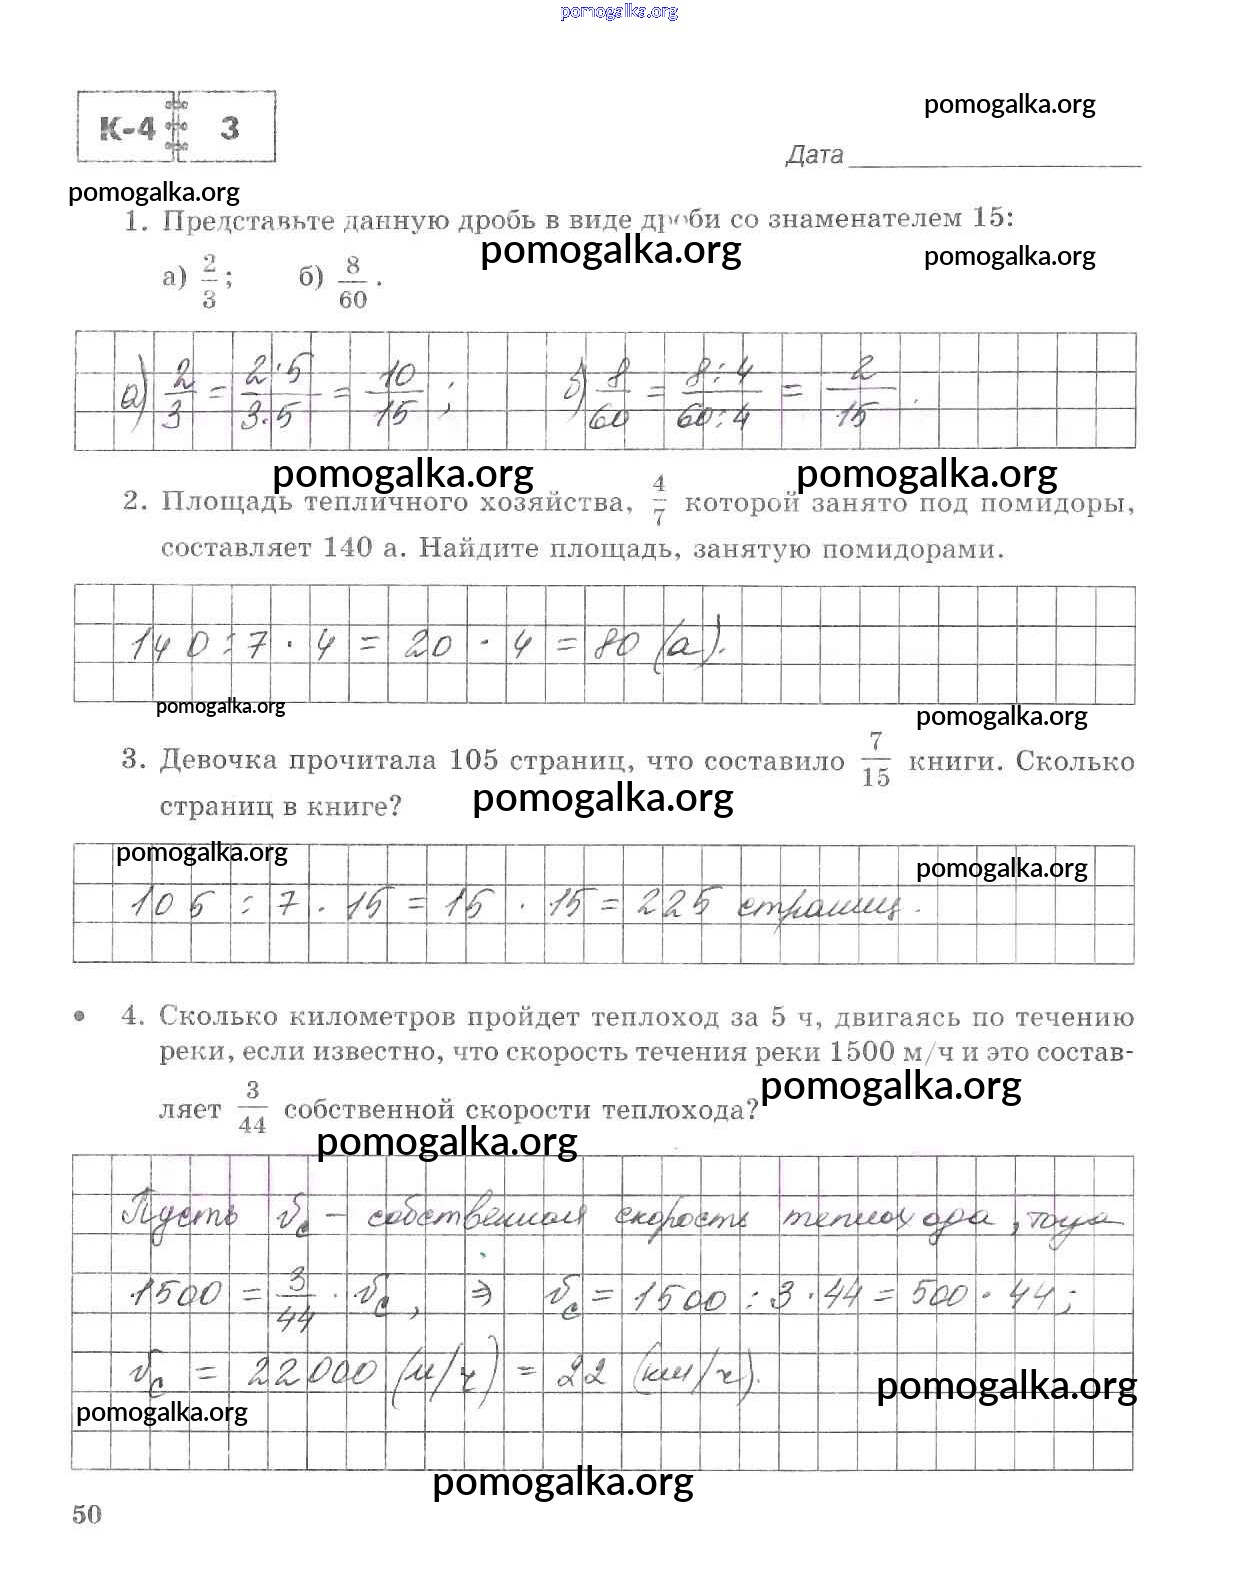 pomogalka.org
К-4 3
pomogalka.org
Дата
pomogalka.org
1. Представьте данную дробь в виде дроби со знаменателем 15:
pomogalka.org
pomogalka.org
а) 2/3; б) 8/60.
а) 2/3 = 2·5/3·5 = 10/15; б) 8/60 = 8:4/60:4 = 2/15.
pomogalka.org pomogalka.org
2. Площадь тепличного хозяйства, 4/7 которой занято под помидоры,
составляет 140 а. Найдите площадь, занятую помидорами.
140 : 7 · 4 = 20 · 4 = 80 (а).
pomogalka.org
pomogalka.org
3. Девочка прочитала 105 страниц, что составило 7/15 книги. Сколько
страниц в книге?
pomogalka.org
pomogalka.org
pomogalka.org
105 : 7 · 15 = 15 · 15 = 225 страниц.
• 4. Сколько километров пройдет теплоход за 5 ч, двигаясь по течению
реки, если известно, что скорость течения реки 1500 м/ч и это состав-
pomogalka.org
ляет 3/44 собственной скорости теплохода?
pomogalka.org
Пусть vс – собственная скорость теплохода, тогда
1500 = 3/44 · vс, ⇒ vс = 1500 : 3 · 44 = 500 · 44;
vс = 22000 (м/ч) = 22 (км/ч).
pomogalka.org
pomogalka.org
pomogalka.org
50